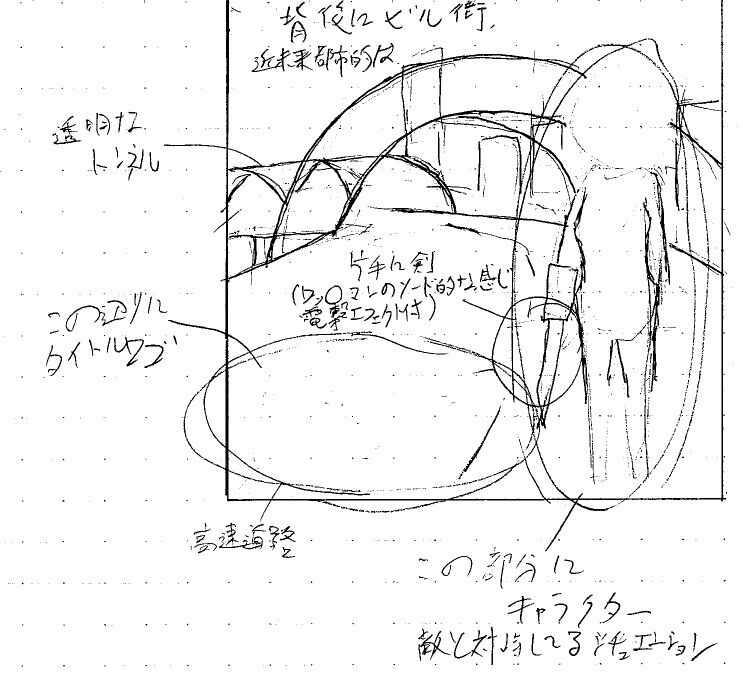 背後にビル街、
近未来都市的な
透明な
トンネル
片手に剣
(ロッ○マンのソード的な感じ
電撃エフェクト付き)
この辺りに
タイトルロゴ
高速道路
この部分に
キャラクター
敵と対峙してるシチュエーション